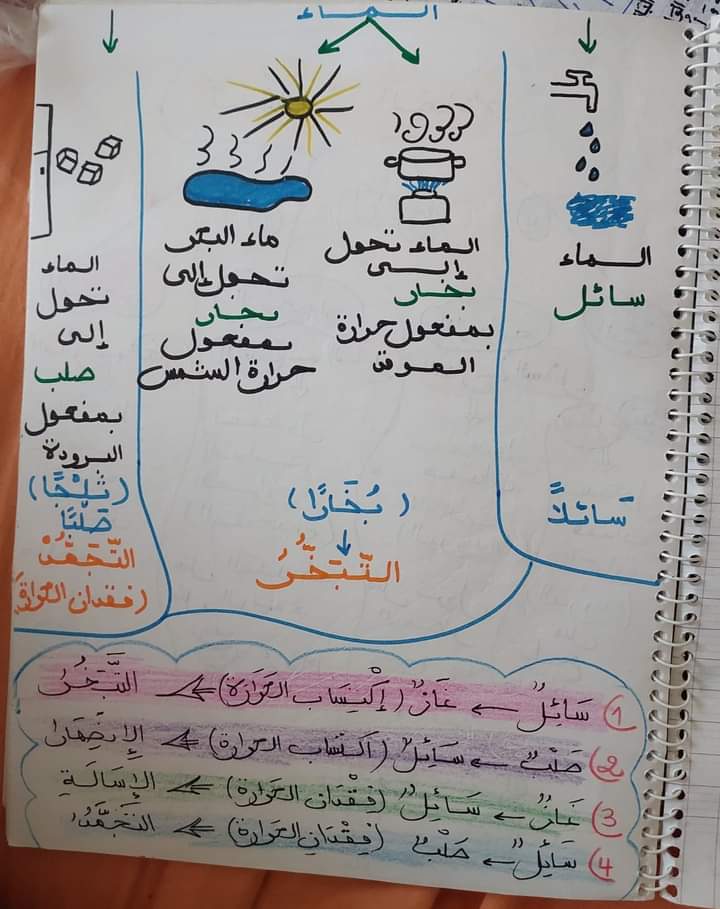 الماء
الماء
سائل
سَائلاً
الماء تحول
إلى
بخار
بمفعول حرارة
الموقد
ماء البحر
تحول إلى
بخار
بمفعول
حرارة الشمس
(بُخَارًا)
التَّبَخُّرُ
الماء
تحول
إلى
صلب
بمفعول
البرودة
(ثَلْجًا)
صَلْبًا
التَّجَمُّدُ
(فقدان الحرارة)
1 سَائِلٌ ← غَازٌ (إِكْتِسَاب الحَرَارَة) ⇐ التَّبَخُّرُ
2 صَلْبٌ ← سَائِلٌ (اكتساب الحرارة) ⇐ الإِنْصِهَارُ
3 غَازٌ ← سَائِلٌ (فِقْدَان الحَرَارة) ⇐ الإِسَالَةِ
4 سَائِلٌ ← صَلْبٌ (فِقْدَانِ الحَرَارة) ⇐ التَجَمُّدُ